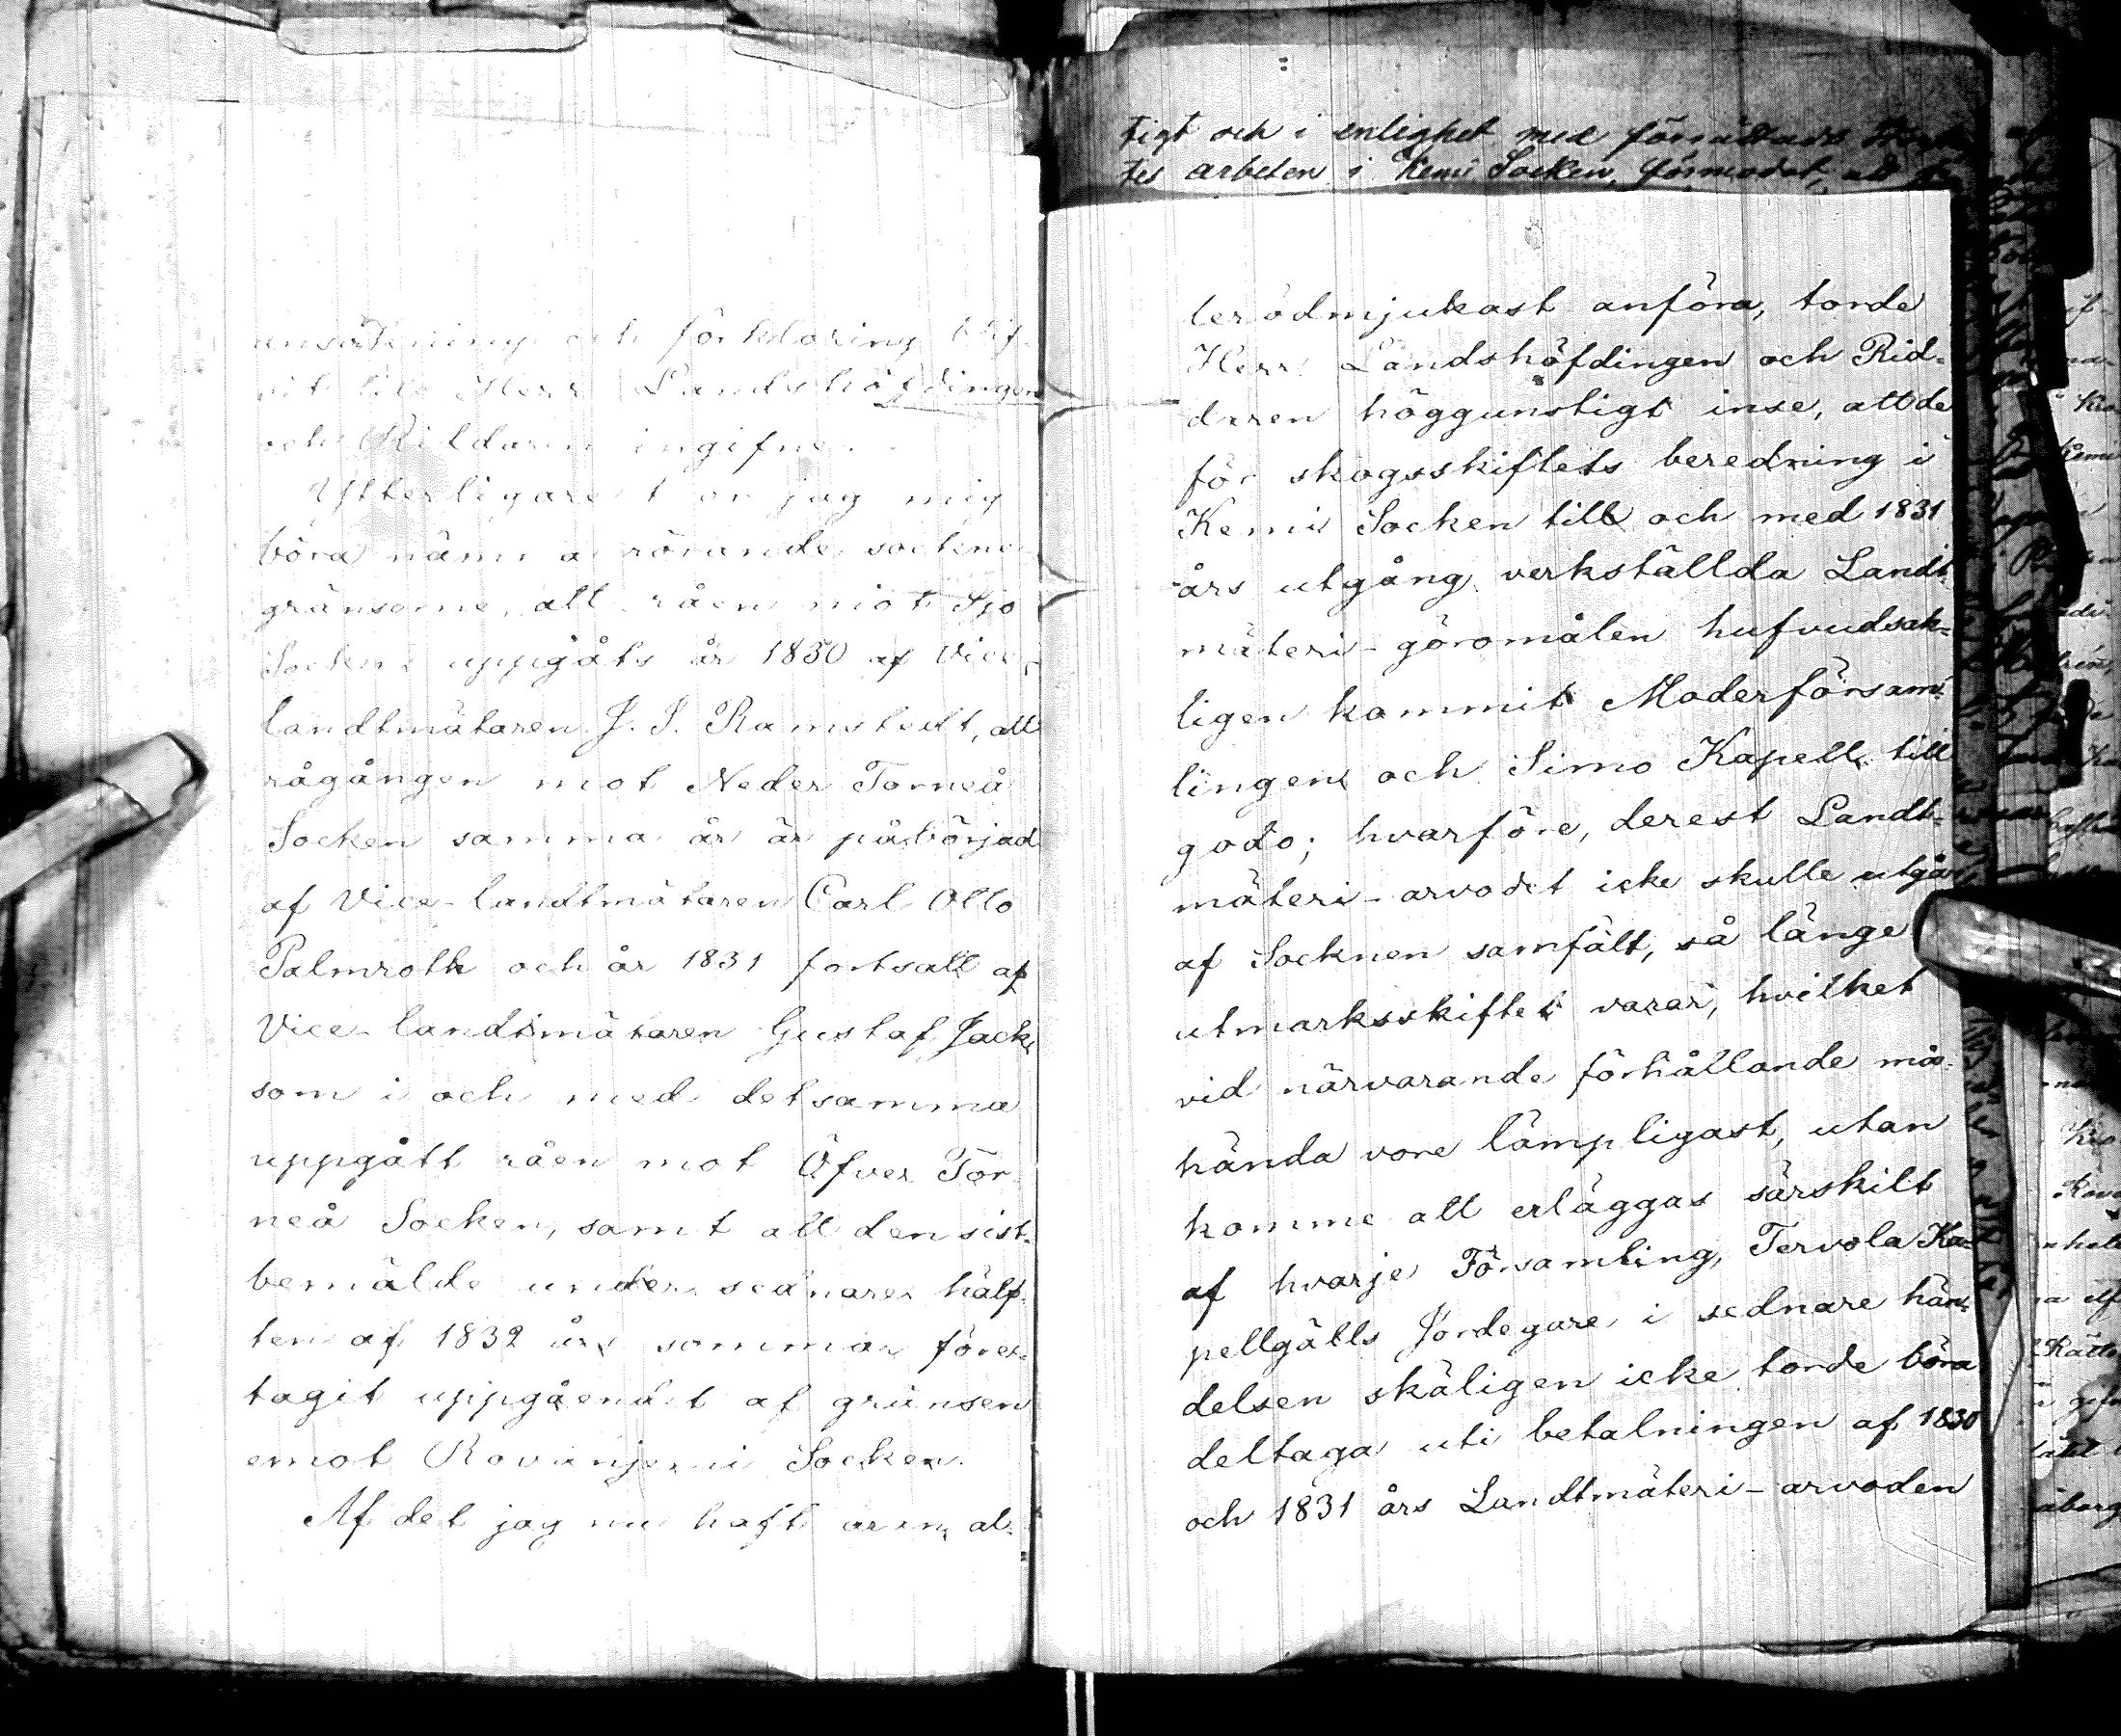 ansökning och förklaring blif-
vit till Herr Landshöfdingen
och Riddaren ingifne.
Ytterligare tor jag mig
böra nämna rörande sockne
gränserne, att råen mot Ijo
Socken uppgåts år 1830 af Vice
landtmätaren J. I. Ramstedt, att
rågången mot Neder Torneå
Socken samma år är påbörjad
af Vice-landtmätaren Carl Otto
Palmroth och år 1831 fortsatt af
Vice-landtmätaren Gustaf Jack,
som i och med detsamma
uppgått råen mot Öfver Tor-
neå Socken, samt att den sist-
bemälde under sednare hälf-
ten af 1832 års sommar före-
tagit uppgåendet af gränsen
emot Rovanjemi Socken.
Af det jag nu haft äran al-
tigt och i enlighet med förrättade
tes arbeten i Kemi Socken, förmodat, att
lerödmjukast anföra, torde
Herr Landshöfdingen och Rid-
daren höggunstigt inse, att de
för skogsskiftets beredning i
Kemi Socken till och med 1831
års utgång verkställda Landt-
mäteri-göromålen hufvudsak-
ligen kommit Moderförsam-
lingen och Simo Kapell till
godo; hvarföre, derest Landt-
mäteri-arvodet icke skulle utgå
af Socknen samfält, så länge
utmarksskiftet varar, hvilket
vid närvarande förhållande må-
hända vore lämpligast, utan
komme att erläggas särskilt
af hvarje Församling, Tervola Ka-
pellgälls Jordegare i sednare hän-
delsen skäligen icke torde böra
deltaga uti betalningen af 1830
och 1831 års Landtmäteri-arvoden